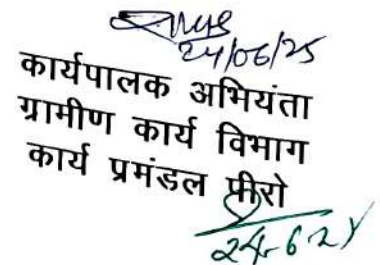 24/06/25
कार्यपालक अभियंता
ग्रामीण कार्य विभाग
कार्य प्रमंडल पीरो
24-6-25